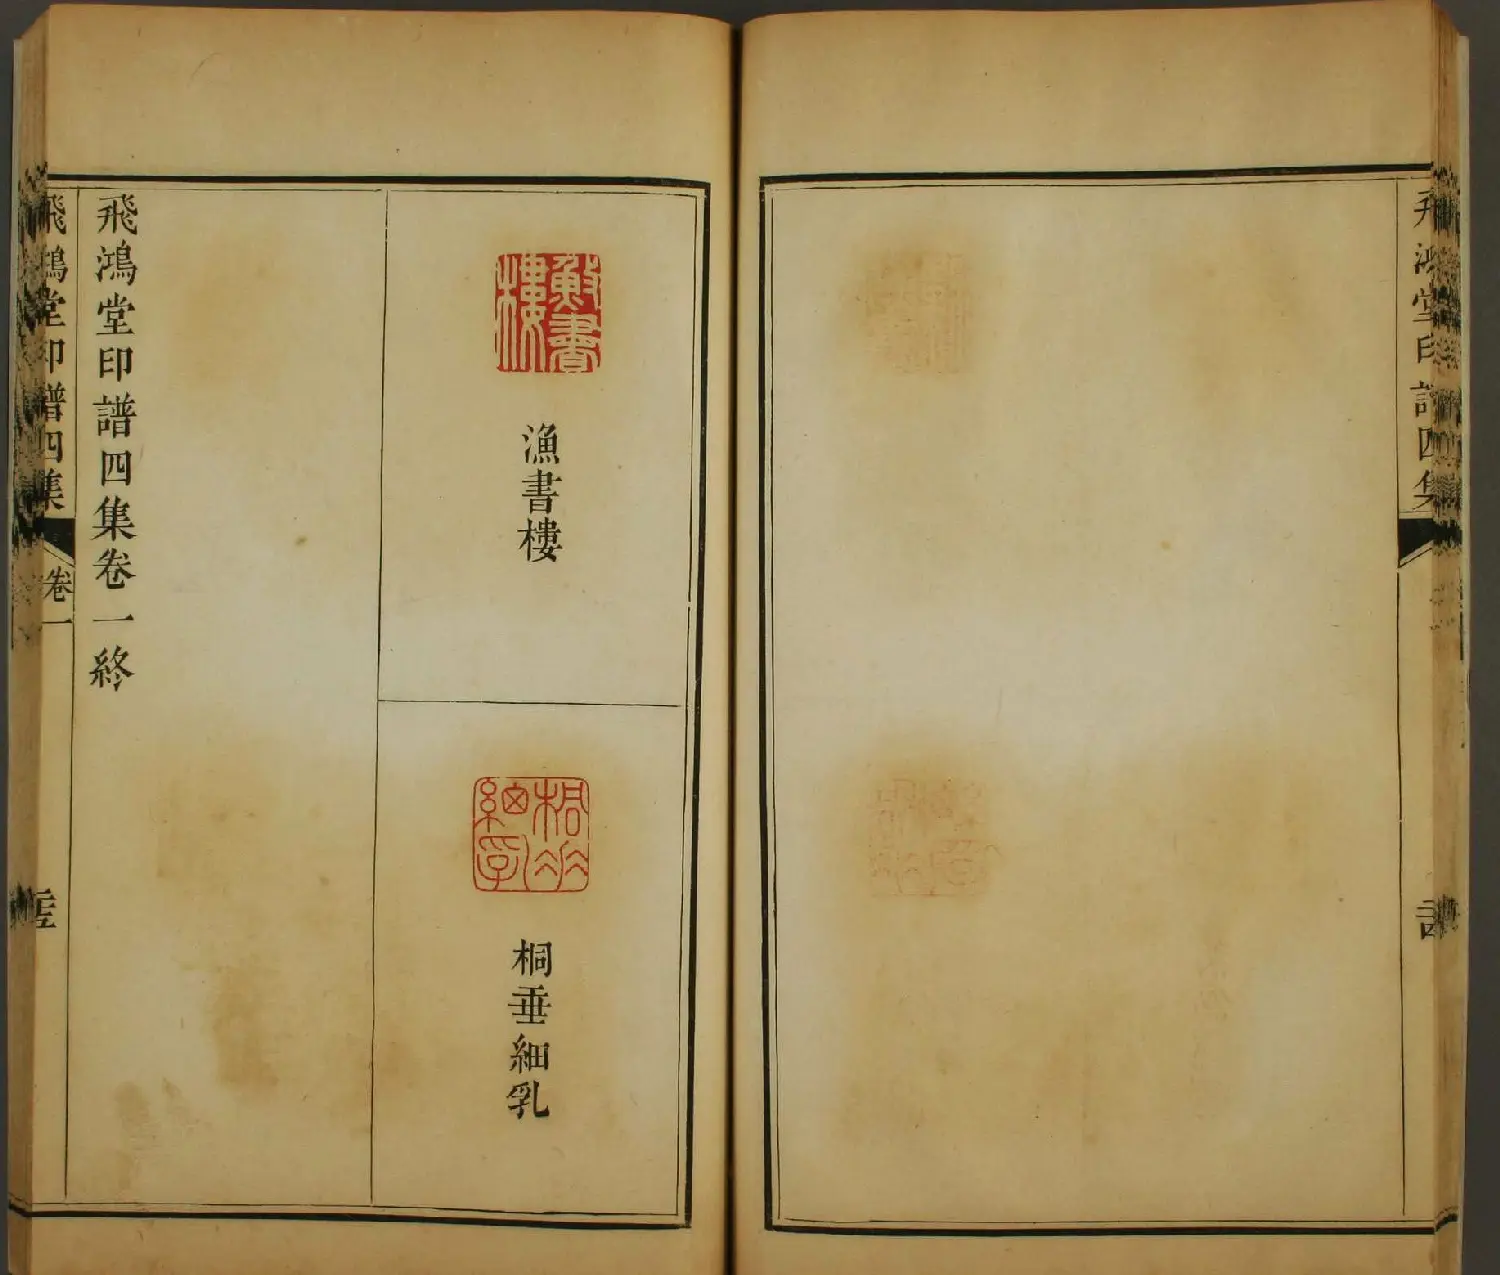 飛鴻堂印譜四集
漁書樓
漁書樓
桐垂細乳
桐垂細乳
飛鴻堂印譜四集卷一終
飛鴻堂印譜四集
卷一